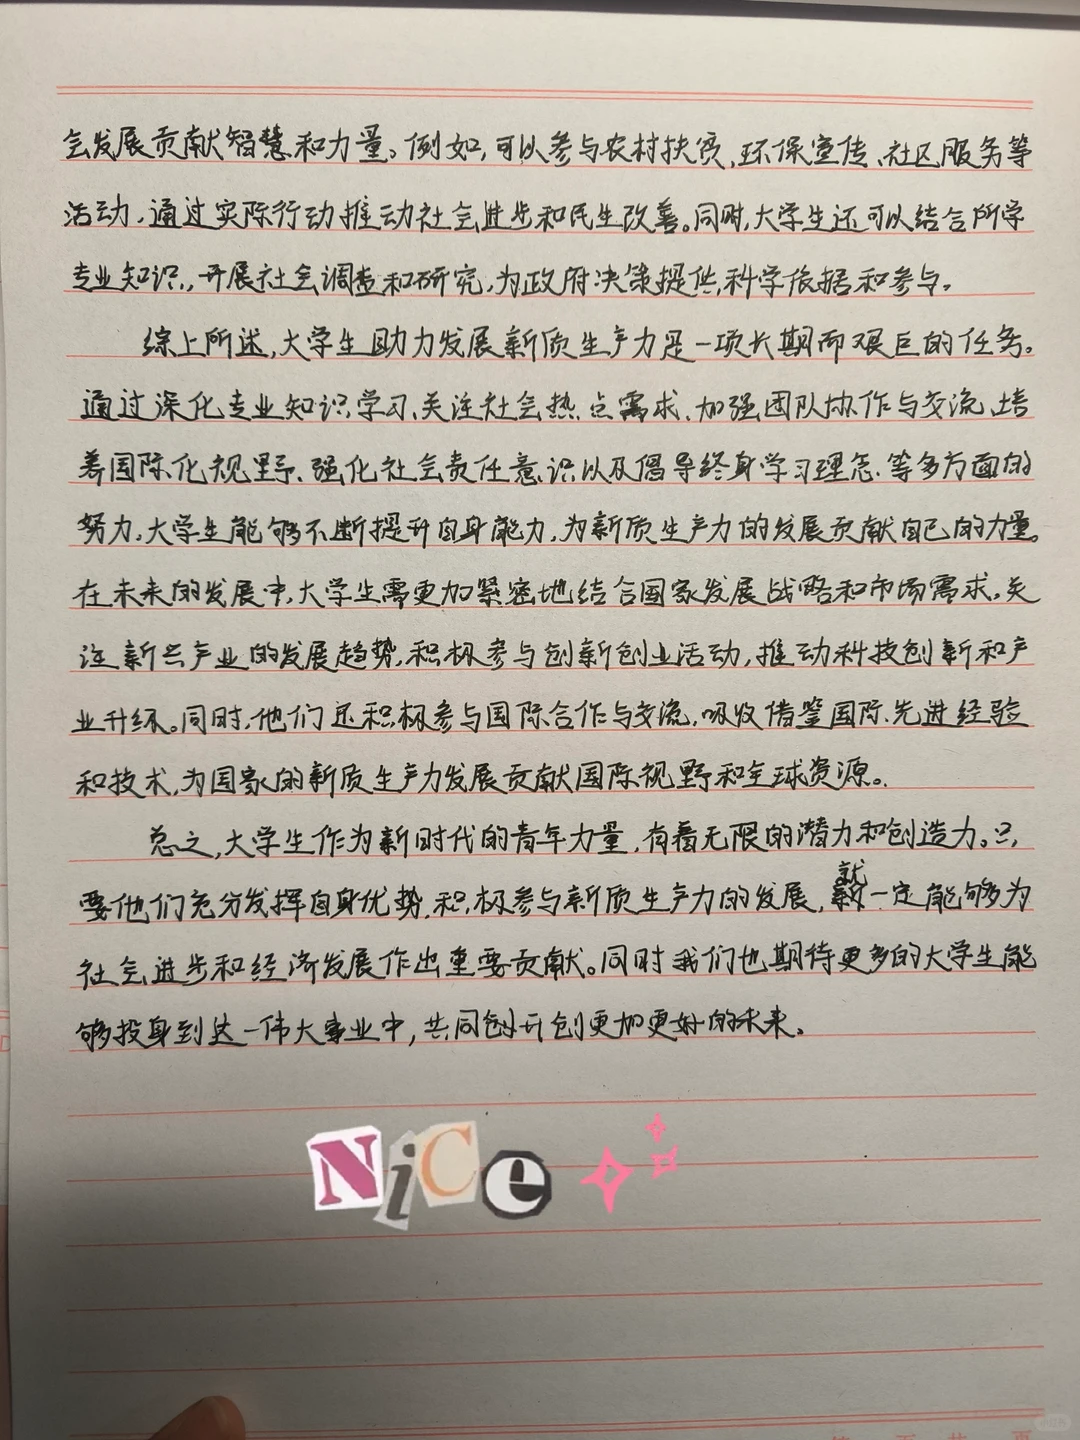 会发展贡献智慧和力量。例如,可以参与农村扶贫、环保宣传、社区服务等
活动,通过实际行动推动社会进步和民生改善。同时,大学生还可以结合所学
专业知识,开展社会调查和研究,为政府决策提供科学依据和参与。
综上所述,大学生助力发展新质生产力是一项长期而艰巨的任务。
通过深化专业知识学习、关注社会热点需求、加强团队协作与交流、培
养国际化视野、强化社会责任意识以及倡导终身学习理念、等多方面的
努力,大学生能够不断提升自身能力,为新质生产力的发展贡献自己的力量。
在未来的发展中,大学生需更加紧密地结合国家发展战略和市场需求,关
注新兴产业的发展趋势,积极参与创新创业活动,推动科技创新和产
业升级。同时,他们还积极参与国际合作与交流,吸收借鉴国际先进经验
和技术,为国家的新质生产力发展贡献国际视野和全球资源。
总之,大学生作为新时代的青年力量,有着无限的潜力和创造力。只
要他们充分发挥自身优势,积极参与新质生产力的发展,就一定能够为
社会进步和经济发展作出重要贡献。同时我们也期待更多的大学生能
够投身到这一伟大事业中,共同创开创更加更好的未来。
Nice